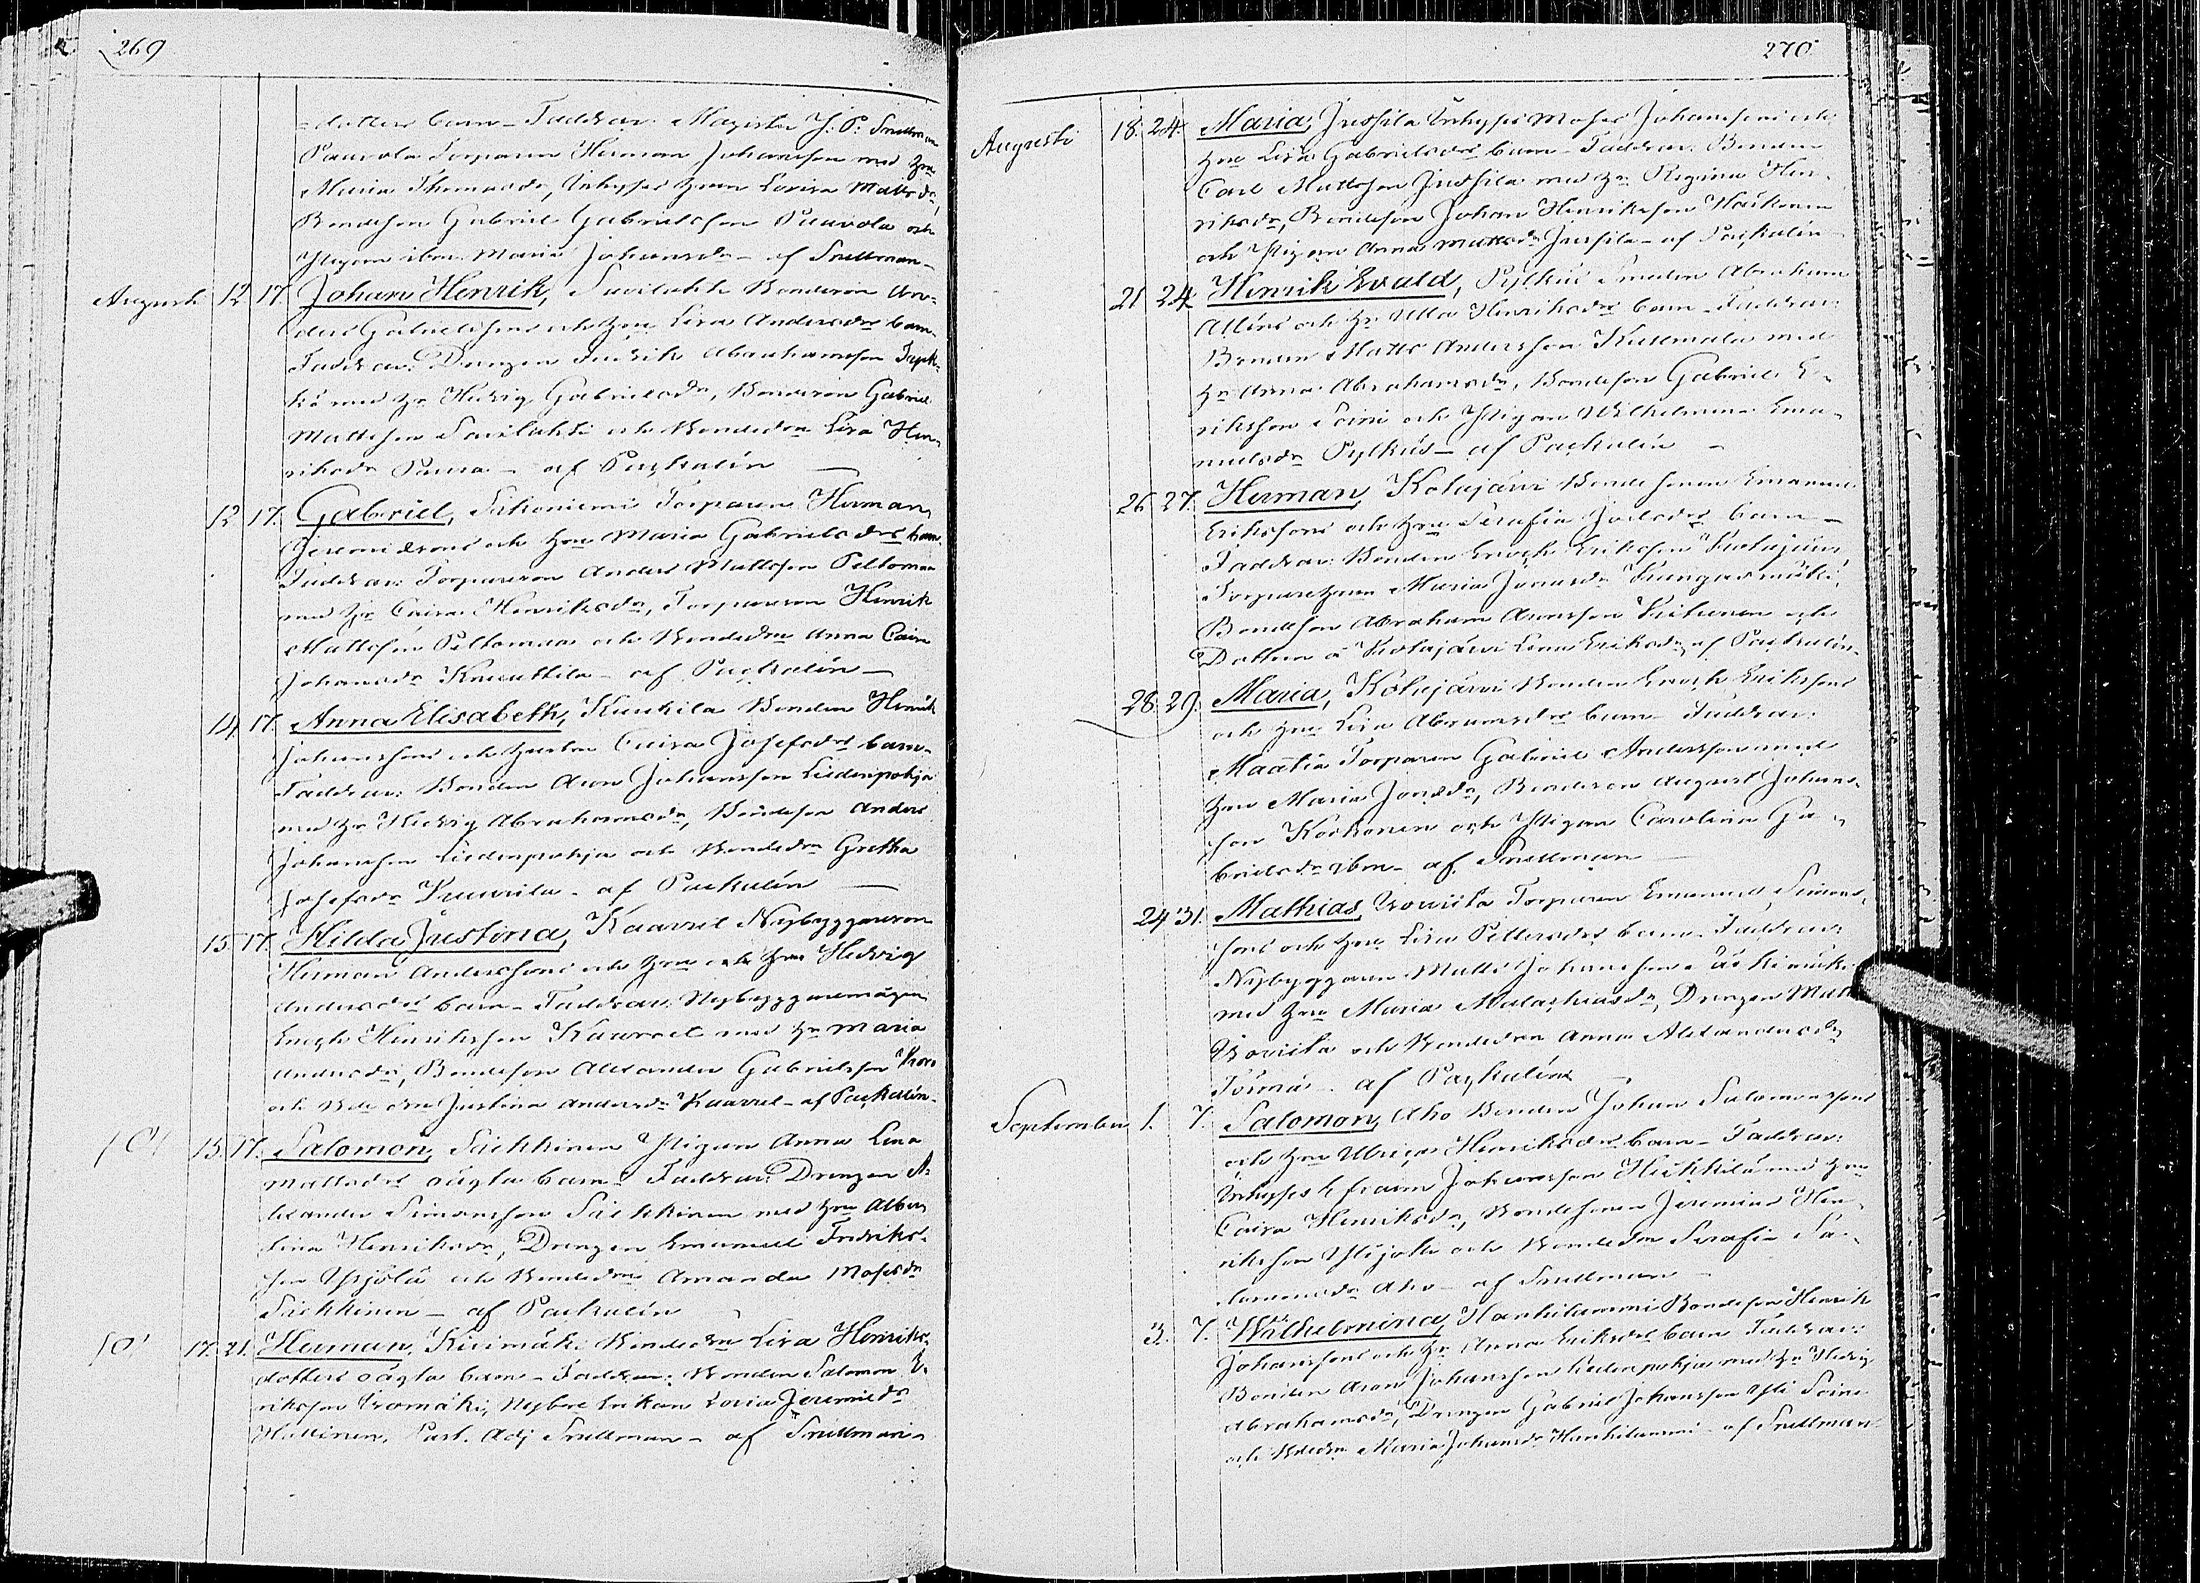 269
dotters barn - Faddrar: Magister J. P. Snellman
Paavola Torparen Herman Johansson med Hu
Maria Thomasdr, Inhyses Hun Lovisa Mattsdr,
Bondeson Gabriel Gabrielsson Paavola och
Pigan ibm Maria Johansdr - af Snellman -
Augusti 12 17. Johan Henrik, Savilahti Bondeson An-
ders Gabrielssons och Hu Lisa Andersdrs barn.
Faddrar: Drengen Fredrik Abrahamsson
med Hu Hedvig Gabrielsdr, Bondeson Gabriel
Mattsson Savilahti och Bondedn Lisa Hen-
riksdr - af Pachalén
12 17. Gabriel, Torparen Herman
och Hu Maria Gabrielsdrs barn.
Faddrar: Torparen Anders Mattsson Peltomaa
med Hu Caisa Henriksdr, Torpareson Henrik
Mattsson Peltomaa och Bondedn Anna Caisa
Johansdr Knuuttila - af Pachalén -
14 17. Anna Elisabeth, Bonden Henrik
Johanssons och Hustru Caisa Josefsdrs barn.
Faddrar: Bonden Aron Johansson Liedenpohja
med Hu Hedvig Abrahamsdr, Bondeson Anders
Johansson Liedenpohja och Bondedn Gretha
Josefsdr - af Pachalén
15 17. Hilda Justina, Nybyggareson
Herman Anderssons och Hu och Hu Hedvig
Andersdrs barn - Faddrar: Nybyggaremågen
Enoch Henriksson med Hu Maria
Andersdr, Bondeson Alexander Gabrielsson
och Justina Andersdr - af Pachalén -
15. 17. Salomon, Pigan Anna Lena
Mattsdrs oägta barn - Faddrar: Drengen A-
lexander Simonsson med Hu Alber-
tina Henriksdr, Drengen Emanuel Fredriks-
son och Bondedn Amanda Mosesdr
- af Pachalén
17. 21. Herman, Bondedn Lisa Henriks-
dotters oägta barn - Faddrar: Bonden Salomon E-
riksson Lovisa Jeremiedr
Past. Adj Snellman - af Snellman -
270
Augusti 18. 24. Maria, Jussila Inhyses Moses Johanssons och
Hu Lisa Gabrielsdrs barn - Faddrar: Bonden
Carl Mattsson Jussila med Hu Regina Hen-
riksdr, Bondeson Johan Henriksson
och Pigan Anna Mattsdr Jussila - af Pachalén
21 24. Henrik Evald, Pylkäs Smeden Abraham
och Hu Ulla Henriksdrs barn - Faddrar:
Bonden Matts Andersson med
Hu Anna Abrahamsdr, Bondeson Gabriel E-
riksson Soini och Pigan Wilhelmina Ema-
nuelsdr Pylkäs - af Pachalén -
26 27. Herman, Kolujärvi Bondesonen Emanuel
Erikssons och Hu Serafia Joelsdrs barn -
Faddrar: Bonden Enoch Eriksson
Torparehun Maria Jonasdr Kangasmäki,
Bondeson Abraham Aronsson och
Dottern å Lena Eriksdr af Pachalén.
28. 29. Maria, Kolujärvi Bonden Enoch Erikssons
och Hu Lisa Abramsdrs barn - Faddrar:
Torparen Gabriel Andersson med
Hu Maria Jonsdr, Bondeson August Johans-
son och Pigan Carolina Ga-
brielsdr ibm - af Snellman
24 31. Mathias, Torparen Emanuel Simons-
sons och Hu Lisa Pettersdrs barn - Faddrar:
Nybyggaren Matts Johansson
med Hu Maria Malachiasdr, Drengen Matts
och Bondedn Anna Alexandersdr
af Pachalén
September 1. 7. Salomon, Aho Bonden Johan Salomonssons
och Hu Ulrica Henriksdrs barn - Faddrar:
Inhyses Efraim Johansson Heikkilä med Hu
Caisa Henriksdr, Bondesonen Jeremias Hen-
riksson och Bondedn Serafia Sa-
lomonsdr Aho - af Snellman
3. 7. Wilhelmina, Hankilammi Bondeson Henrik
Johanssons och Hu Anna Eriksdrs barn Faddrar:
Bonden Aron Johansson Liedenpohja med Hu Hedvig
Abrahamsdr, Drengen Gabriel Johansson Yli Soini
och Maria Johansdr Hankilammi - af Snellman